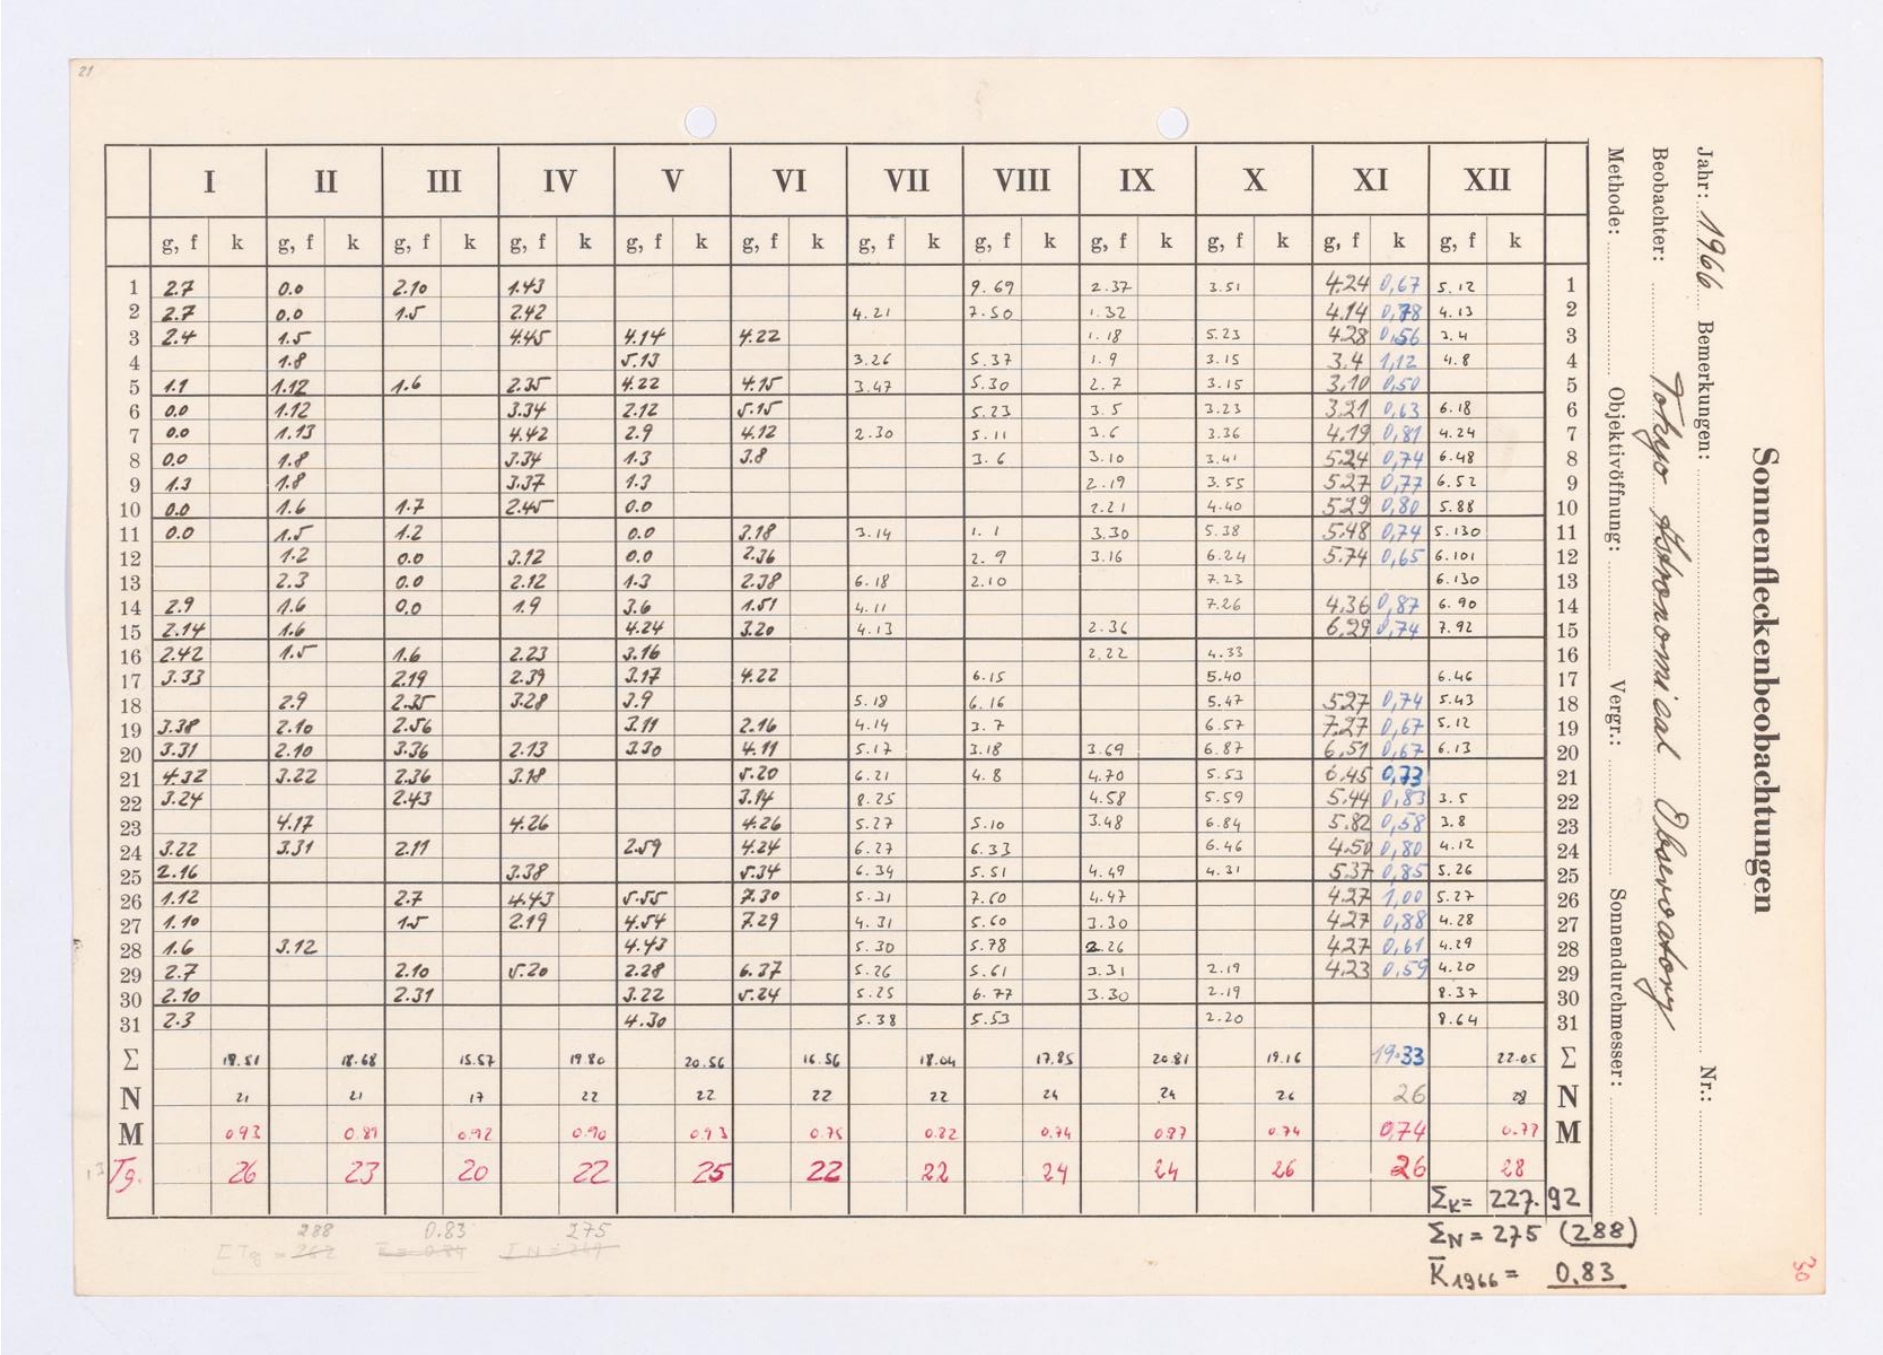 21
I II III IV V VI VII VIII IX X XI XII
g, f k g, f k g, f k g, f k g, f k g, f k g, f k g, f k g, f k g, f k g, f k g, f k
1 2.7 0.0 2.10 1.43 9.69 2.37 3.51 4.24 0,67 5.12 1
2 2.7 0.0 1.5 2.42 4.21 7.50 1.32 4.14 0,78 4.13 2
3 2.4 1.5 4.45 4.14 4.22 1.18 5.23 4.28 0,56 3.4 3
4 1.8 5.13 3.26 5.37 1.9 3.15 3.4 1,12 4.8 4
5 1.1 1.12 1.6 2.35 4.22 4.15 3.47 5.30 2.7 3.15 3,10 0,50 5
6 0.0 1.12 3.34 2.12 5.15 5.23 3.5 3.23 3.21 0,63 6.18 6
7 0.0 1.13 4.42 2.9 4.12 2.30 5.11 3.6 3.36 4.19 0,81 4.24 7
8 0.0 1.8 3.34 1.3 3.8 3.6 3.10 3.41 5.24 0,74 6.48 8
9 1.3 1.8 3.37 1.3 2.19 3.55 5.27 0,77 6.52 9
10 0.0 1.6 1.7 2.45 0.0 2.21 4.40 5.29 0,80 5.88 10
11 0.0 1.5 1.2 0.0 3.18 3.14 1.1 3.30 5.38 5.48 0,74 5.130 11
12 1.2 0.0 3.12 0.0 2.36 2.9 3.16 6.24 5.74 0,65 6.101 12
13 2.3 0.0 2.12 1.3 2.38 6.18 2.10 7.23 6.130 13
14 2.9 1.6 0.0 1.9 3.6 1.51 4.11 7.26 4.36 0,87 6.90 14
15 2.14 1.6 4.24 3.20 4.13 2.36 6.29 0,74 7.92 15
16 2.42 1.5 1.6 2.23 3.16 2.22 4.33 16
17 3.33 2.19 2.39 3.17 4.22 6.15 5.40 6.46 17
18 2.9 2.35 3.28 3.9 5.18 6.16 5.47 5.27 0,74 5.43 18
19 3.38 2.10 2.56 3.11 2.16 4.14 3.7 6.57 7.27 0,67 5.12 19
20 3.31 2.10 3.36 2.13 3.30 4.11 5.17 3.18 3.69 6.87 6.51 0,67 6.13 20
21 4.32 3.22 2.36 3.18 5.20 6.21 4.8 4.70 5.53 6.45 0,73 21
22 3.24 2.43 3.14 8.25 4.58 5.59 5.44 0,83 3.5 22
23 4.17 4.26 4.26 5.27 5.10 3.48 6.84 5.82 0,58 3.8 23
24 3.22 3.31 2.11 2.59 4.24 6.27 6.33 6.46 4.50 0,80 4.12 24
25 2.16 3.38 5.34 6.34 5.51 4.49 4.31 5.37 0,85 5.26 25
26 1.12 2.7 4.43 5.55 7.30 5.31 7.60 4.47 4.27 1,00 5.27 26
27 1.10 1.5 2.19 4.54 7.29 4.31 5.60 3.30 4.27 0,88 4.28 27
28 1.6 3.12 4.43 5.30 5.78 2.26 4.27 0,61 4.29 28
29 2.7 2.10 5.20 2.28 6.37 5.26 5.61 3.31 2.19 4.23 0,59 4.20 29
30 2.10 2.31 3.22 5.24 5.25 6.77 3.30 2.19 8.37 30
31 2.3 4.30 5.38 5.53 2.20 8.64 31
Σ 19.51 18.68 15.57 19.80 20.56 16.56 18.04 17.85 20.81 19.16 19.33 22.05 Σ
N 21 21 17 22 22 22 22 24 24 26 26 28 N
M 0.93 0.89 0.92 0.90 0.93 0.75 0.82 0.74 0.87 0.74 0,74 0.79 M
Tg. 26 23 20 22 25 22 22 24 24 26 26 28
Σk= 227.92
288 0.83 275
ΣN = 275 (288)
K̅1966 = 0.83
30
Sonnenfleckenbeobachtungen
Jahr: 1966 Bemerkungen: Nr.:
Beobachter: Tokyo Astronomical Observatory
Methode: Objektivöffnung: Vergr.: Sonnendurchmesser: